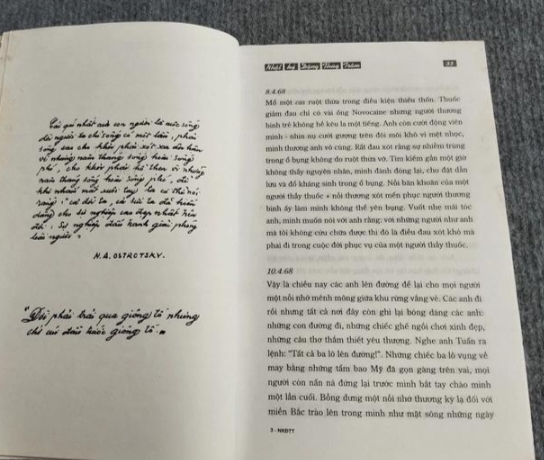 Cái quí nhất của con người ta là sự sống
đời người ta chỉ sống có một lần, phải
sống sao cho khỏi phải xót xa ân hận
vì những năm tháng sống hoài sống
phí, cho khỏi phải hổ thẹn vì những
để khi nhắm mắt xuôi tay ta có thể nói
rằng: "cả đời ta, cả sức ta đã hiến
dâng cho sự nghiệp cao đẹp nhất trên
đời, sự nghiệp đấu tranh giải phóng
loài người"
N.A. OSTROTSKY.
"Đời phải trải qua giông tố nhưng
chớ cúi đầu trước giông tố"
Nhật ký Đặng Thùy Trâm
33
8.4.68
Mổ một ca ruột thừa trong điều kiện thiếu thốn. Thuốc
giảm đau chỉ có vài ống Novocaine nhưng người thương
binh trẻ không hề kêu la một tiếng. Anh còn cười động viên
mình - nhìn nụ cười gượng trên đôi môi khô vì mệt nhọc,
mình thương anh vô cùng. Rất đau xót rằng sự nhiễm trùng
trong ổ bụng không do ruột thừa vỡ. Tìm kiếm gần một giờ
không thấy nguyên nhân, mình đành đóng lại, cho đặt dẫn
lưu và đổ kháng sinh trong ổ bụng. Nỗi băn khoăn của một
người thầy thuốc + nỗi thương xót mến phục người thương
binh ấy làm mình không thể yên bụng. Vuốt nhẹ mái tóc
anh, mình muốn nói với anh rằng: với những người như anh
mà tôi không cứu chữa được thì đó là điều đau xót khó mà
phai đi trong cuộc đời phục vụ của một người thầy thuốc.
10.4.68
Vậy là chiều nay các anh lên đường để lại cho mọi người
một nỗi nhớ mênh mông giữa khu rừng vắng vẻ. Các anh đi
rồi nhưng tất cả nơi đây còn ghi lại bóng dáng các anh:
những con đường đi, những chiếc ghế ngồi chơi xinh đẹp,
những câu thơ thắm thiết yêu thương. Nghe anh Tuấn ra
lệnh: "Tất cả ba lô lên đường!". Những chiếc ba lô vụng về
may bằng những tấm bao Mỹ đã gọn gàng trên vai, mọi
người còn nấn ná đứng lại trước mình bắt tay chào mình
một lần cuối. Bỗng dưng một nỗi nhớ thương kỳ lạ đối với
miền Bắc trào lên trong mình như mặt sông những ngày
3 - NKĐTT